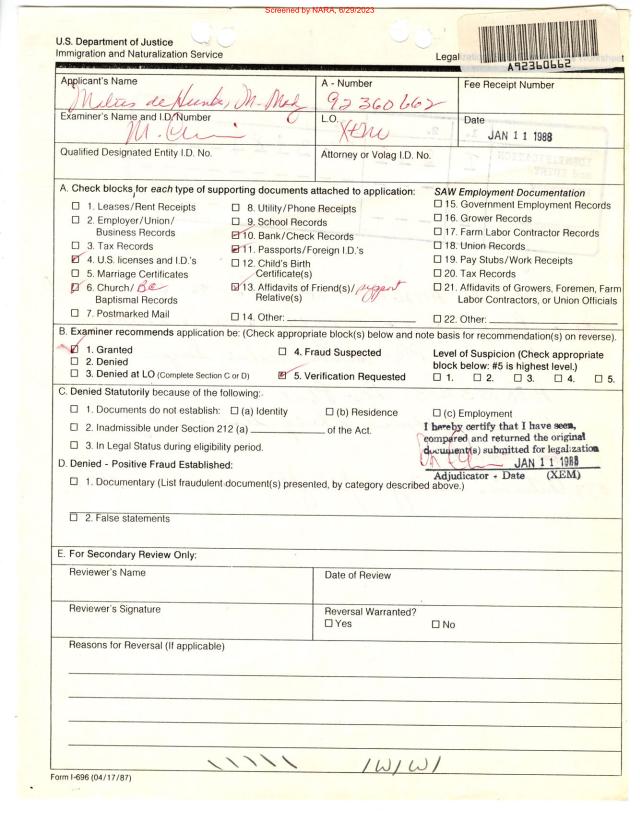 Screened by NARA, 6/29/2023
U.S. Department of Justice
Immigration and Naturalization Service
Legal
A92360662
Applicant's Name
A - Number
Fee Receipt Number
92 360 662
Examiner's Name and I.D. Number
L.O.
Date
XEM
JAN 11 1988
Qualified Designated Entity I.D. No.
Attorney or Volag I.D. No.
A. Check blocks for each type of supporting documents attached to application:
☐ 1. Leases/Rent Receipts
☐ 2. Employer/Union/
Business Records
☐ 3. Tax Records
☑ 4. U.S. licenses and I.D.'s
☐ 5. Marriage Certificates
☑ 6. Church/ BC
Baptismal Records
☐ 7. Postmarked Mail
☐ 8. Utility/Phone Receipts
☐ 9. School Records
☑ 10. Bank/Check Records
☑ 11. Passports/Foreign I.D.'s
☐ 12. Child's Birth
Certificate(s)
☑ 13. Affidavits of Friend(s)/ support
Relative(s)
☐ 14. Other:
SAW Employment Documentation
☐ 15. Government Employment Records
☐ 16. Grower Records
☐ 17. Farm Labor Contractor Records
☐ 18. Union Records
☐ 19. Pay Stubs/Work Receipts
☐ 20. Tax Records
☐ 21. Affidavits of Growers, Foremen, Farm
Labor Contractors, or Union Officials
☐ 22. Other:
B. Examiner recommends application be: (Check appropriate block(s) below and note basis for recommendation(s) on reverse).
☑ 1. Granted
☐ 2. Denied
☐ 3. Denied at LO (Complete Section C or D)
☐ 4. Fraud Suspected
☑ 5. Verification Requested
Level of Suspicion (Check appropriate
block below: #5 is highest level.)
☐ 1. ☐ 2. ☐ 3. ☐ 4. ☐ 5.
C. Denied Statutorily because of the following:
☐ 1. Documents do not establish: ☐ (a) Identity ☐ (b) Residence ☐ (c) Employment
☐ 2. Inadmissible under Section 212 (a) of the Act.
☐ 3. In Legal Status during eligibility period.
I hereby certify that I have seen,
compared and returned the original
document(s) submitted for legalization
JAN 11 1988
Adjudicator - Date (XEM)
D. Denied - Positive Fraud Established:
☐ 1. Documentary (List fraudulent document(s) presented, by category described above.)
☐ 2. False statements
E. For Secondary Review Only:
Reviewer's Name
Date of Review
Reviewer's Signature
Reversal Warranted?
☐ Yes ☐ No
Reasons for Reversal (If applicable)
Form I-696 (04/17/87)